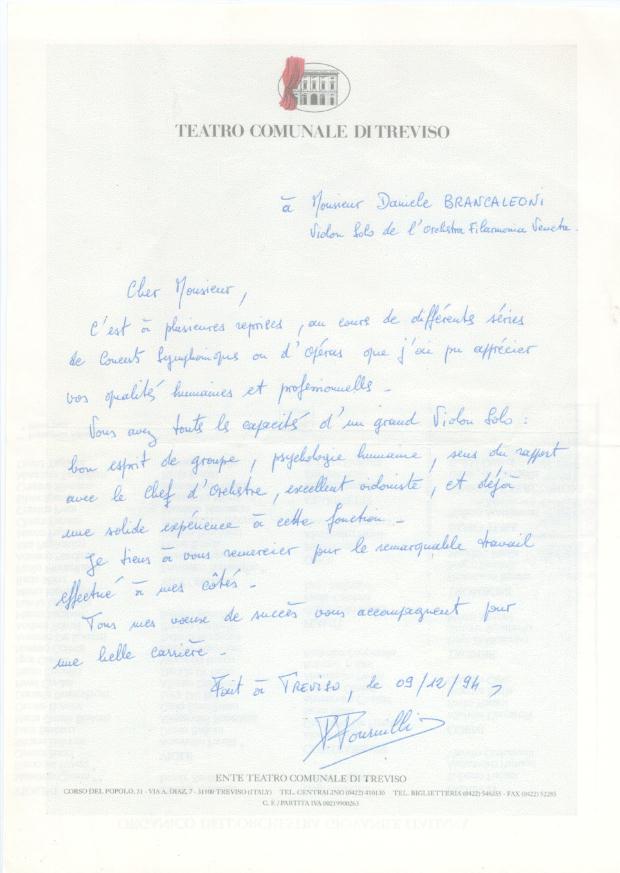 TEATRO COMUNALE DI TREVISO
à Monsieur Daniele BRANCALEONI
Violon Solo de l'Orchestra Filarmonia Veneta.
Cher Monsieur,
C'est à plusieures reprises, au cours de différents séries
de Concert Symphoniques ou d'Opéras que j'ai pu apprécier
vos qualités humaines et professionnelles.
Vous avez toute la capacité d'un grand Violon Solo :
bon esprit de groupe, psychologie humaine, sens du rapport
avec le Chef d'Orchestre, excellent violoniste, et déjà
une solide expérience à cette fonction.
Je tiens à vous remercier pour le remarquable travail
effectué à mes côtés.
Tous mes voeux de succès vous accompagnent pour
une belle carrière.
Fait à TREVISO, le 09/12/94
ENTE TEATRO COMUNALE DI TREVISO
CORSO DEL POPOLO, 31 - VIA A. DIAZ, 7 - 31100 TREVISO (ITALY) TEL. CENTRALINO (0422) 410130 TEL. BIGLIETTERIA (0422) 546355 - FAX (0422) 52285
C. F. / PARTITA IVA 00219900263